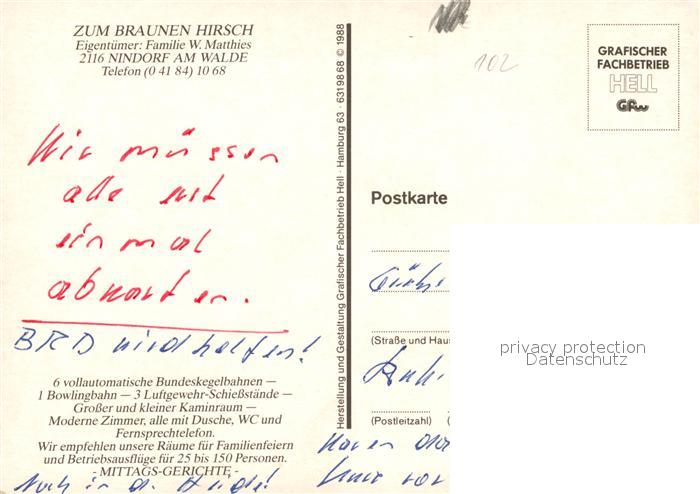 ZUM BRAUNEN HIRSCH
Eigentümer: Familie W. Matthies
2116 NINDORF AM WALDE
Telefon (0 41 84) 10 68
Wir müssen
alle erst
einmal
abwarten.
BRD wird helfen!
6 vollautomatische Bundeskegelbahnen —
1 Bowlingbahn — 3 Luftgewehr-Schießstände —
Großer und kleiner Kaminraum —
Moderne Zimmer, alle mit Dusche, WC und
Fernsprechtelefon.
Wir empfehlen unsere Räume für Familienfeiern
und Betriebsausflüge für 25 bis 150 Personen.
- MITTAGS-GERICHTE -
Noch in d. Heide!
Herstellung und Gestaltung Grafischer Fachbetrieb Hell · Hamburg 63 · 6319868 © 1988
102
GRAFISCHER
FACHBETRIEB
HELL
Postkarte
(Straße und Haus
(Postleitzahl) (
waren
privacy protection
Datenschutz